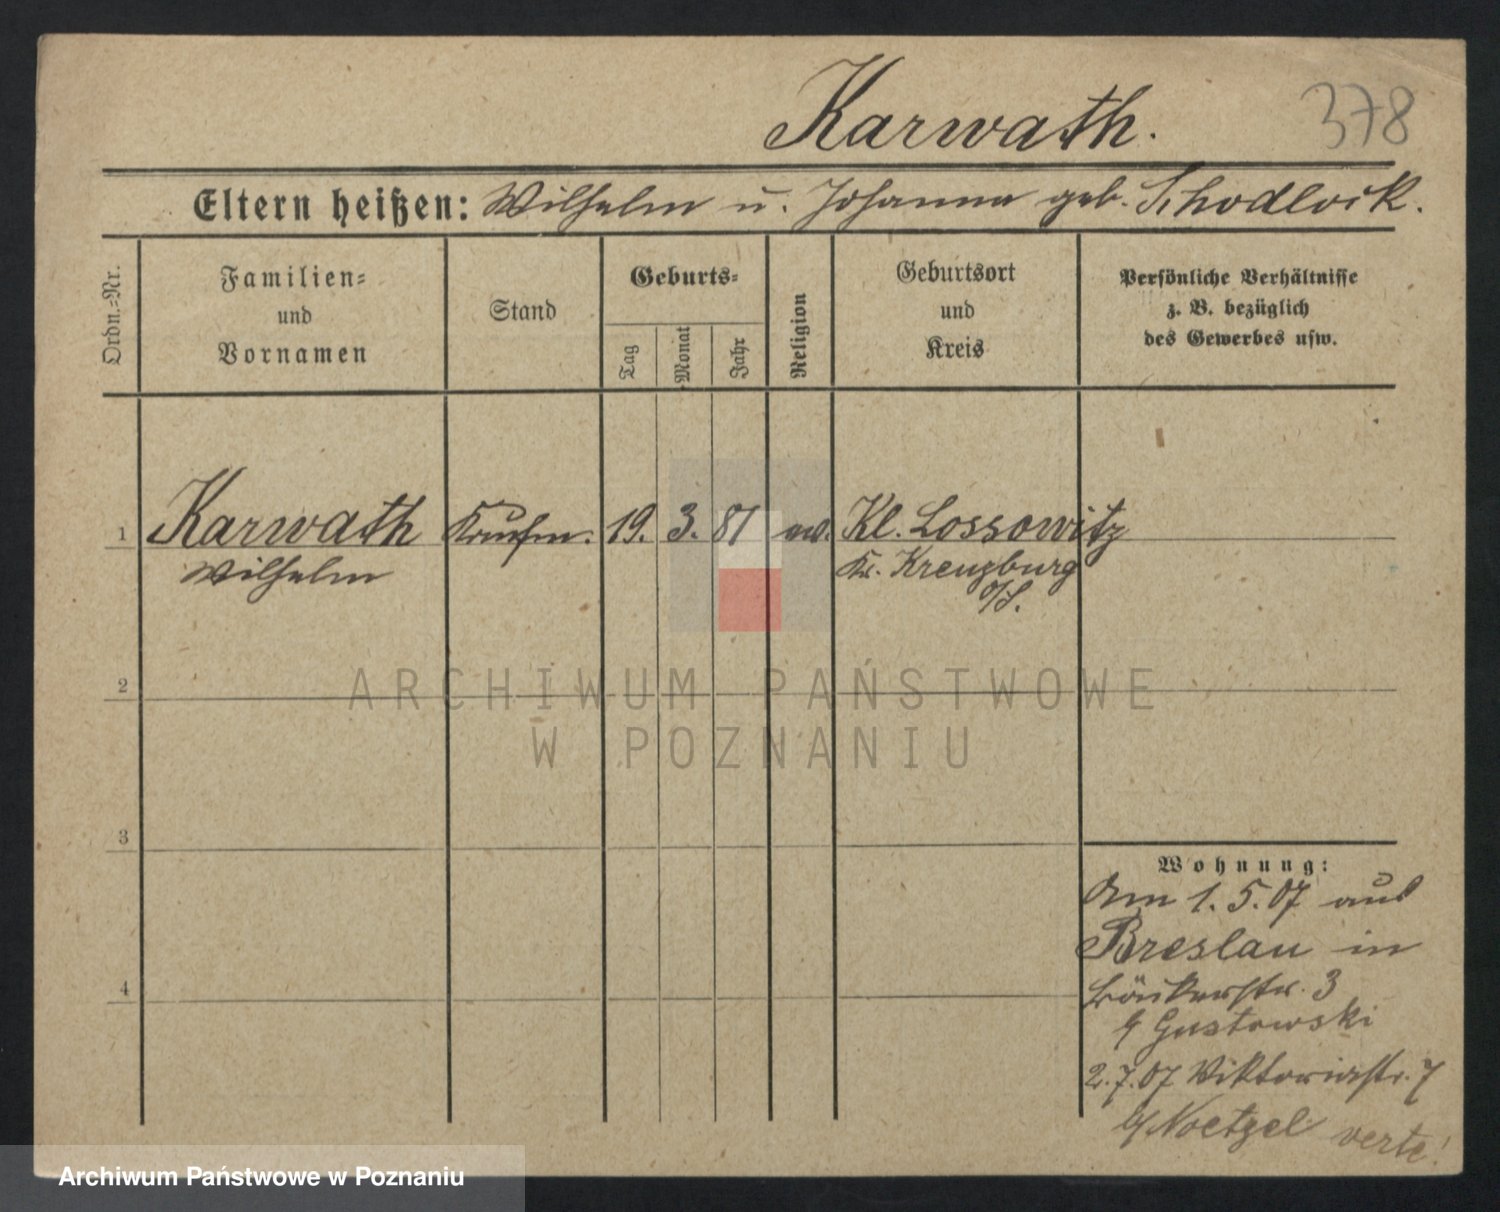 Karwath.
378
Eltern heißen: Wilhelm u. Johanna geb. Schodlock.
Ordn.-Nr.
Familien-
und
Vornamen
Stand
Geburts-
Tag
Monat
Jahr
Religion
Geburtsort
und
Kreis
Persönliche Verhältnisse
z. B. bezüglich
des Gewerbes usw.
1 Karwath Kaufm. 19. 3. 81 ev. Kl. Lossowitz
Wilhelm Kr. Kreuzburg
o/S.
2
3
4
Wohnung:
Am 1. 5. 07 aus
Breslau in
Bäckerstr. 3
b/ Gustowski
2. 7. 07 Viktoriastr. 7
b/ Noetzel verte!
ARCHIWUM PAŃSTWOWE
W POZNANIU
Archiwum Państwowe w Poznaniu